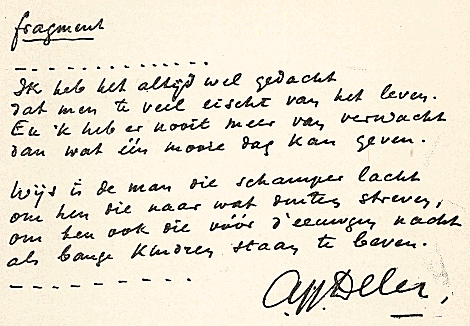 fragment
Ik heb het altijd wel gedacht
dat men te veel eischt van het leven.
En 'k heb er nooit meer van verwacht
dan wat één mooie dag kan geven.
Wijs is de man die schamper lacht
om hen die naar wat duiten streven,
om hen ook die vóór d'eeuwgen nacht
als bange kindren staan te beven.